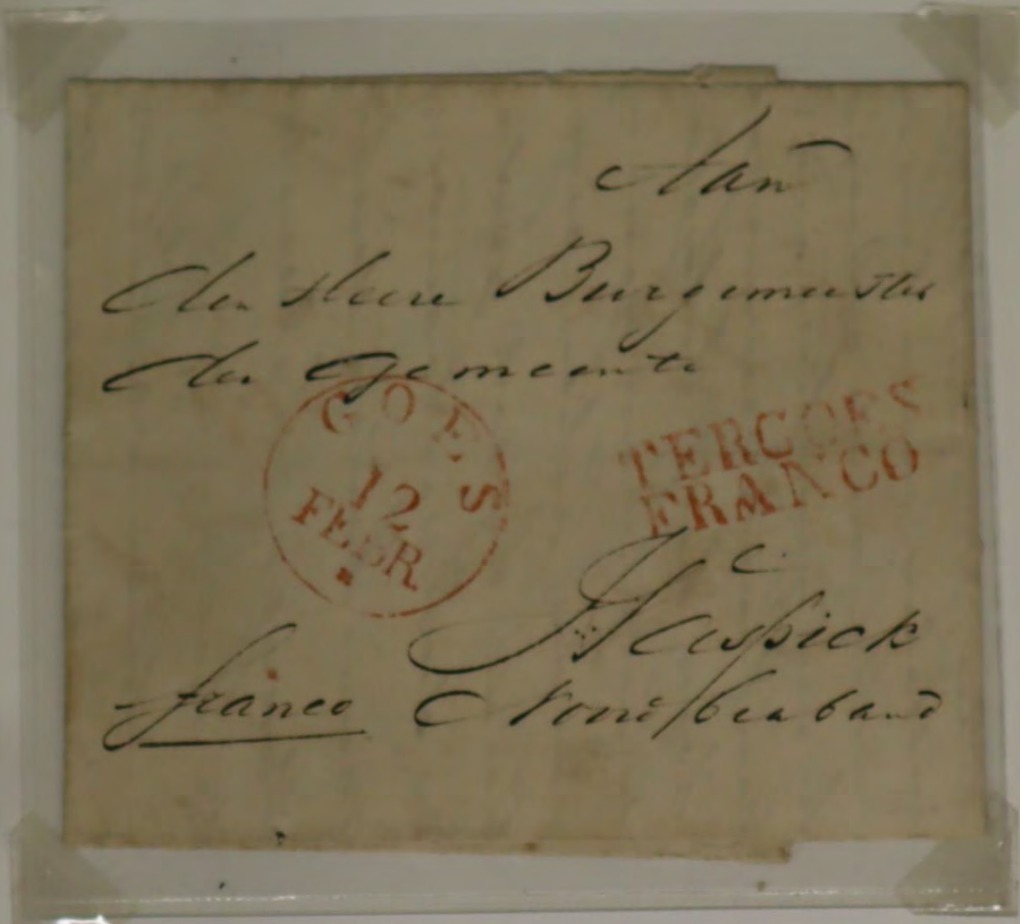 Aan
den Heere Burgemeester
der Gemeente
GOES
12
FEBR
TERGOES
FRANCO
Waspick
franco Noord braband